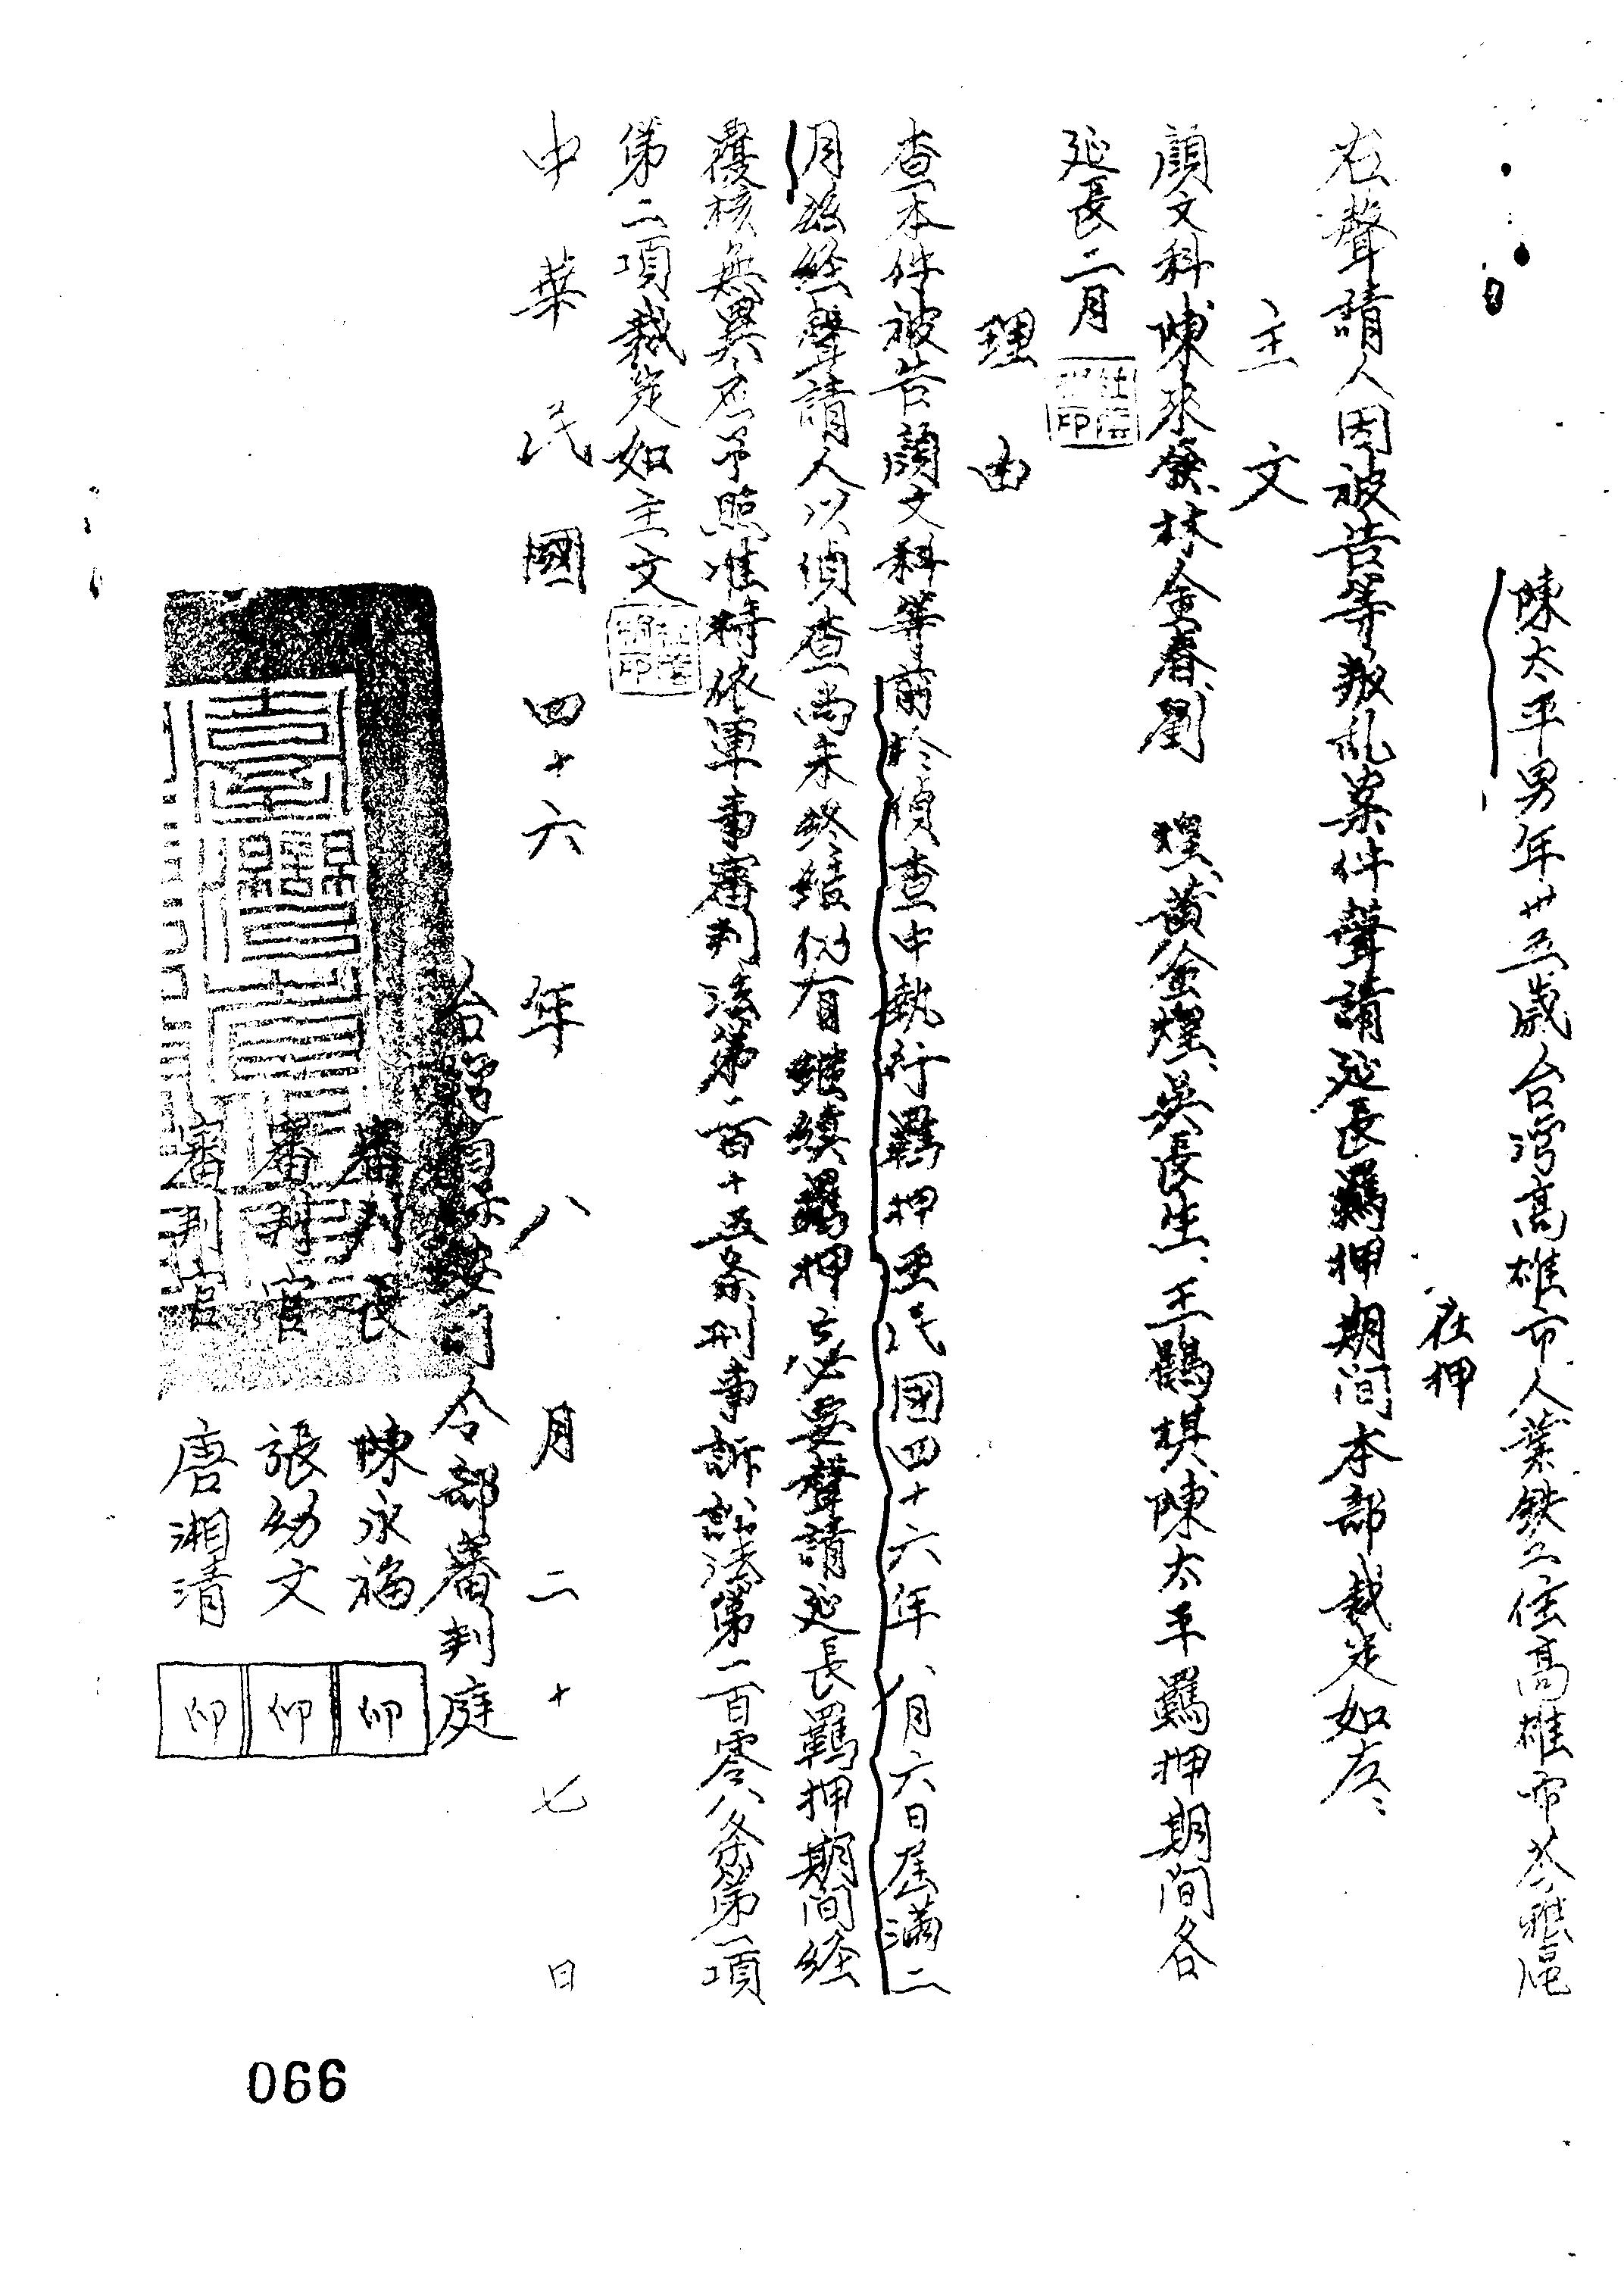 陳太平男年卅五歲台湾高雄市人業鉄工住高雄市苓雅區
在押
右聲請人因被告等叛乱案件聲請延長羈押期间本部裁定如左
主文
顏文科、陳來發、林金春、劉 煌、黃金煌、吳長生、王鵾棋、陳太平羈押期间各
延長二月
理由
查本件被告顏文科等前於偵查中執行羈押至民國四十六年八月六日屆滿二
月茲経聲請人以偵查尚未終結仍有繼續羈押之必要聲請延長羈押期间経
覆核無異应予照准特依軍事審判法第二百十五条刑事訴訟法第一百零八条第一項
第二項裁定如主文
中華民國四十六年八月二十七日
台灣省保安司令部審判庭
審判長 陳永福 印
審判官 張幼文 印
審判官 唐湘清 印
066